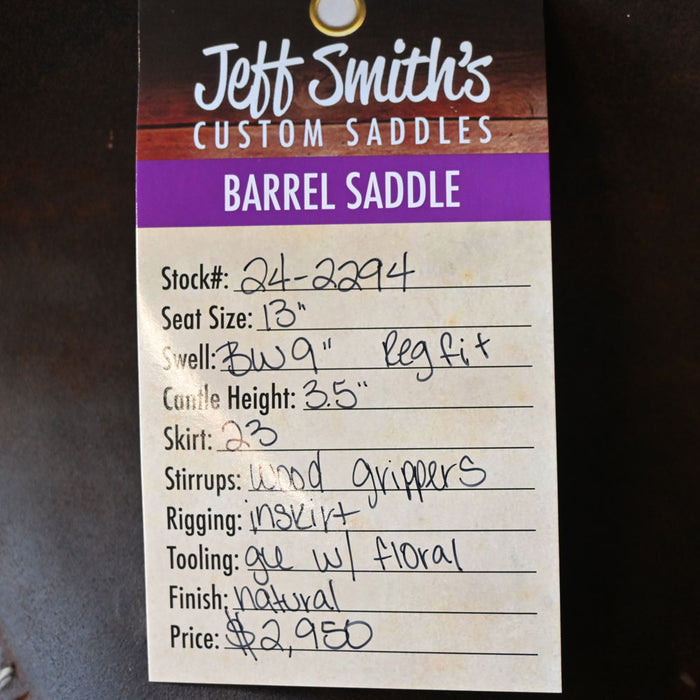 Jeff Smith's
CUSTOM SADDLES
BARREL SADDLE
Stock#: 24-2294
Seat Size: 13"
Swell: BW 9" Reg fit
Cantle Height: 3.5"
Skirt: 23
Stirrups: wood grippers
Rigging: inskirt
Tooling: w/ floral
Finish: natural
Price: $2,950